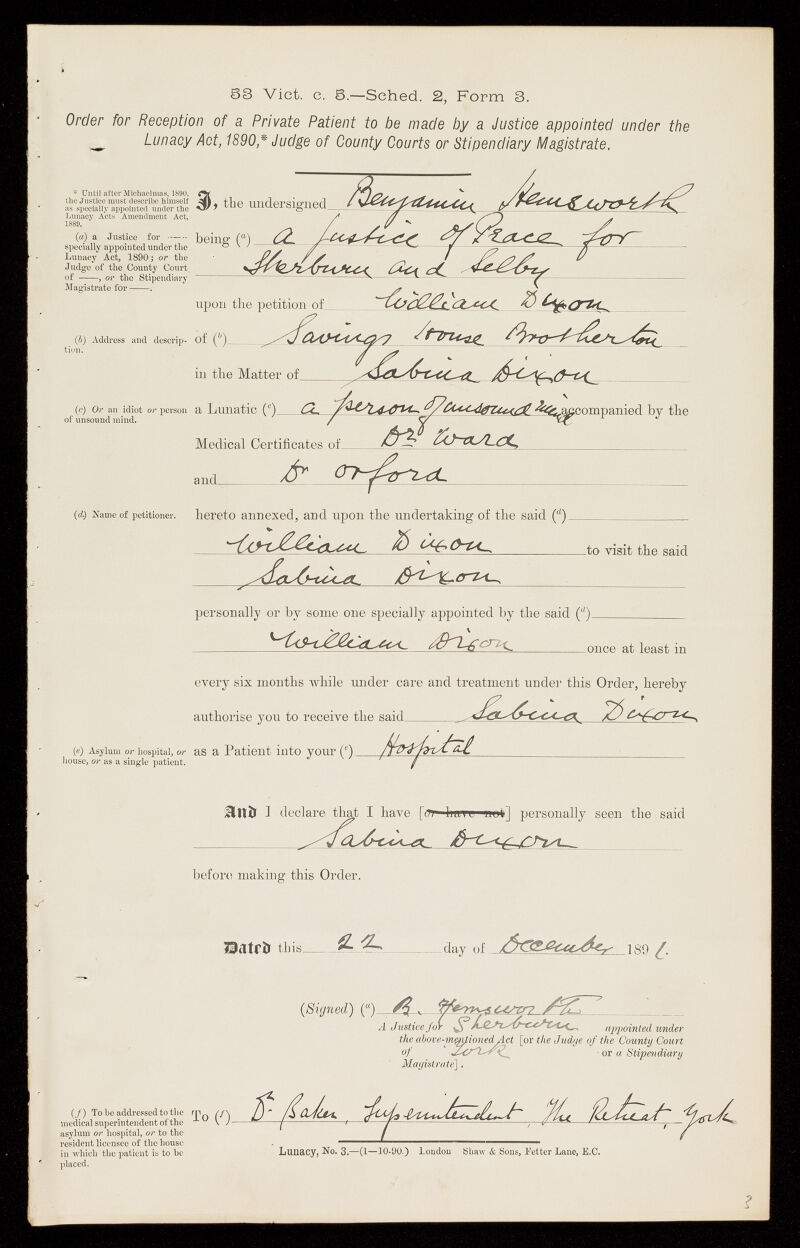 53 Vict. c. 5.—Sched. 2, Form 3.
Order for Reception of a Private Patient to be made by a Justice appointed under the
Lunacy Act, 1890,* Judge of County Courts or Stipendiary Magistrate.
* Until after Michaelmas, 1890,
the Justice must describe himself
as specially appointed under the
Lunacy Acts Amendment Act,
1889.
I, the undersigned Benjamin Hemsworth
(a) a Justice for ——
specially appointed under the
Lunacy Act, 1890; or the
Judge of the County Court
of ——, or the Stipendiary
Magistrate for ——.
being (a) a Justice of Peace for
Sherburn and Selby
upon the petition of William Dixon
(b) Address and descrip-
tion.
of (b) Savings House Brotherton
in the Matter of Sabina Dixon
(c) Or an idiot or person
of unsound mind.
a Lunatic (c) a person of unsound mind accompanied by the
Medical Certificates of Dr Ward
and Dr Orford
(d) Name of petitioner.
hereto annexed, and upon the undertaking of the said (d)
William Dixon to visit the said
Sabina Dixon
personally or by some one specially appointed by the said (d)
William Dixon once at least in
every six months while under care and treatment under this Order, hereby
authorise you to receive the said Sabina Dixon
(e) Asylum or hospital, or
house, or as a single patient.
as a Patient into your (e) Hospital
And I declare that I have [or have not] personally seen the said
Sabina Dixon
before making this Order.
Dated this 22 day of December 1891.
(Signed) (a) B. Hemsworth
A Justice for Sherburn appointed under
the above-mentioned Act [or the Judge of the County Court
of York or a Stipendiary
Magistrate].
(f) To be addressed to the
medical superintendent of the
asylum or hospital, or to the
resident licensee of the house
in which the patient is to be
placed.
To (f) Dr Baker, Superintendent, The Retreat, York
Lunacy, No. 3.—(1—10-90.) London Shaw & Sons, Fetter Lane, E.C.
3